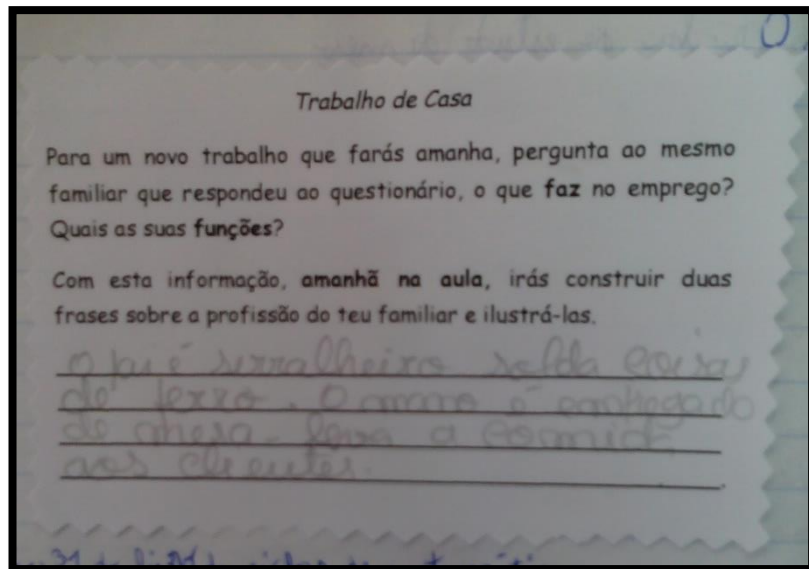 Trabalho de Casa
Para um novo trabalho que farás amanha, pergunta ao mesmo
familiar que respondeu ao questionário, o que faz no emprego?
Quais as suas funções?
Com esta informação, amanhã na aula, irás construir duas
frases sobre a profissão do teu familiar e ilustrá-las.
O pai é serralheiro solda coisas
de ferro. O mano é
de mesa. leva a comida
aos clientes.